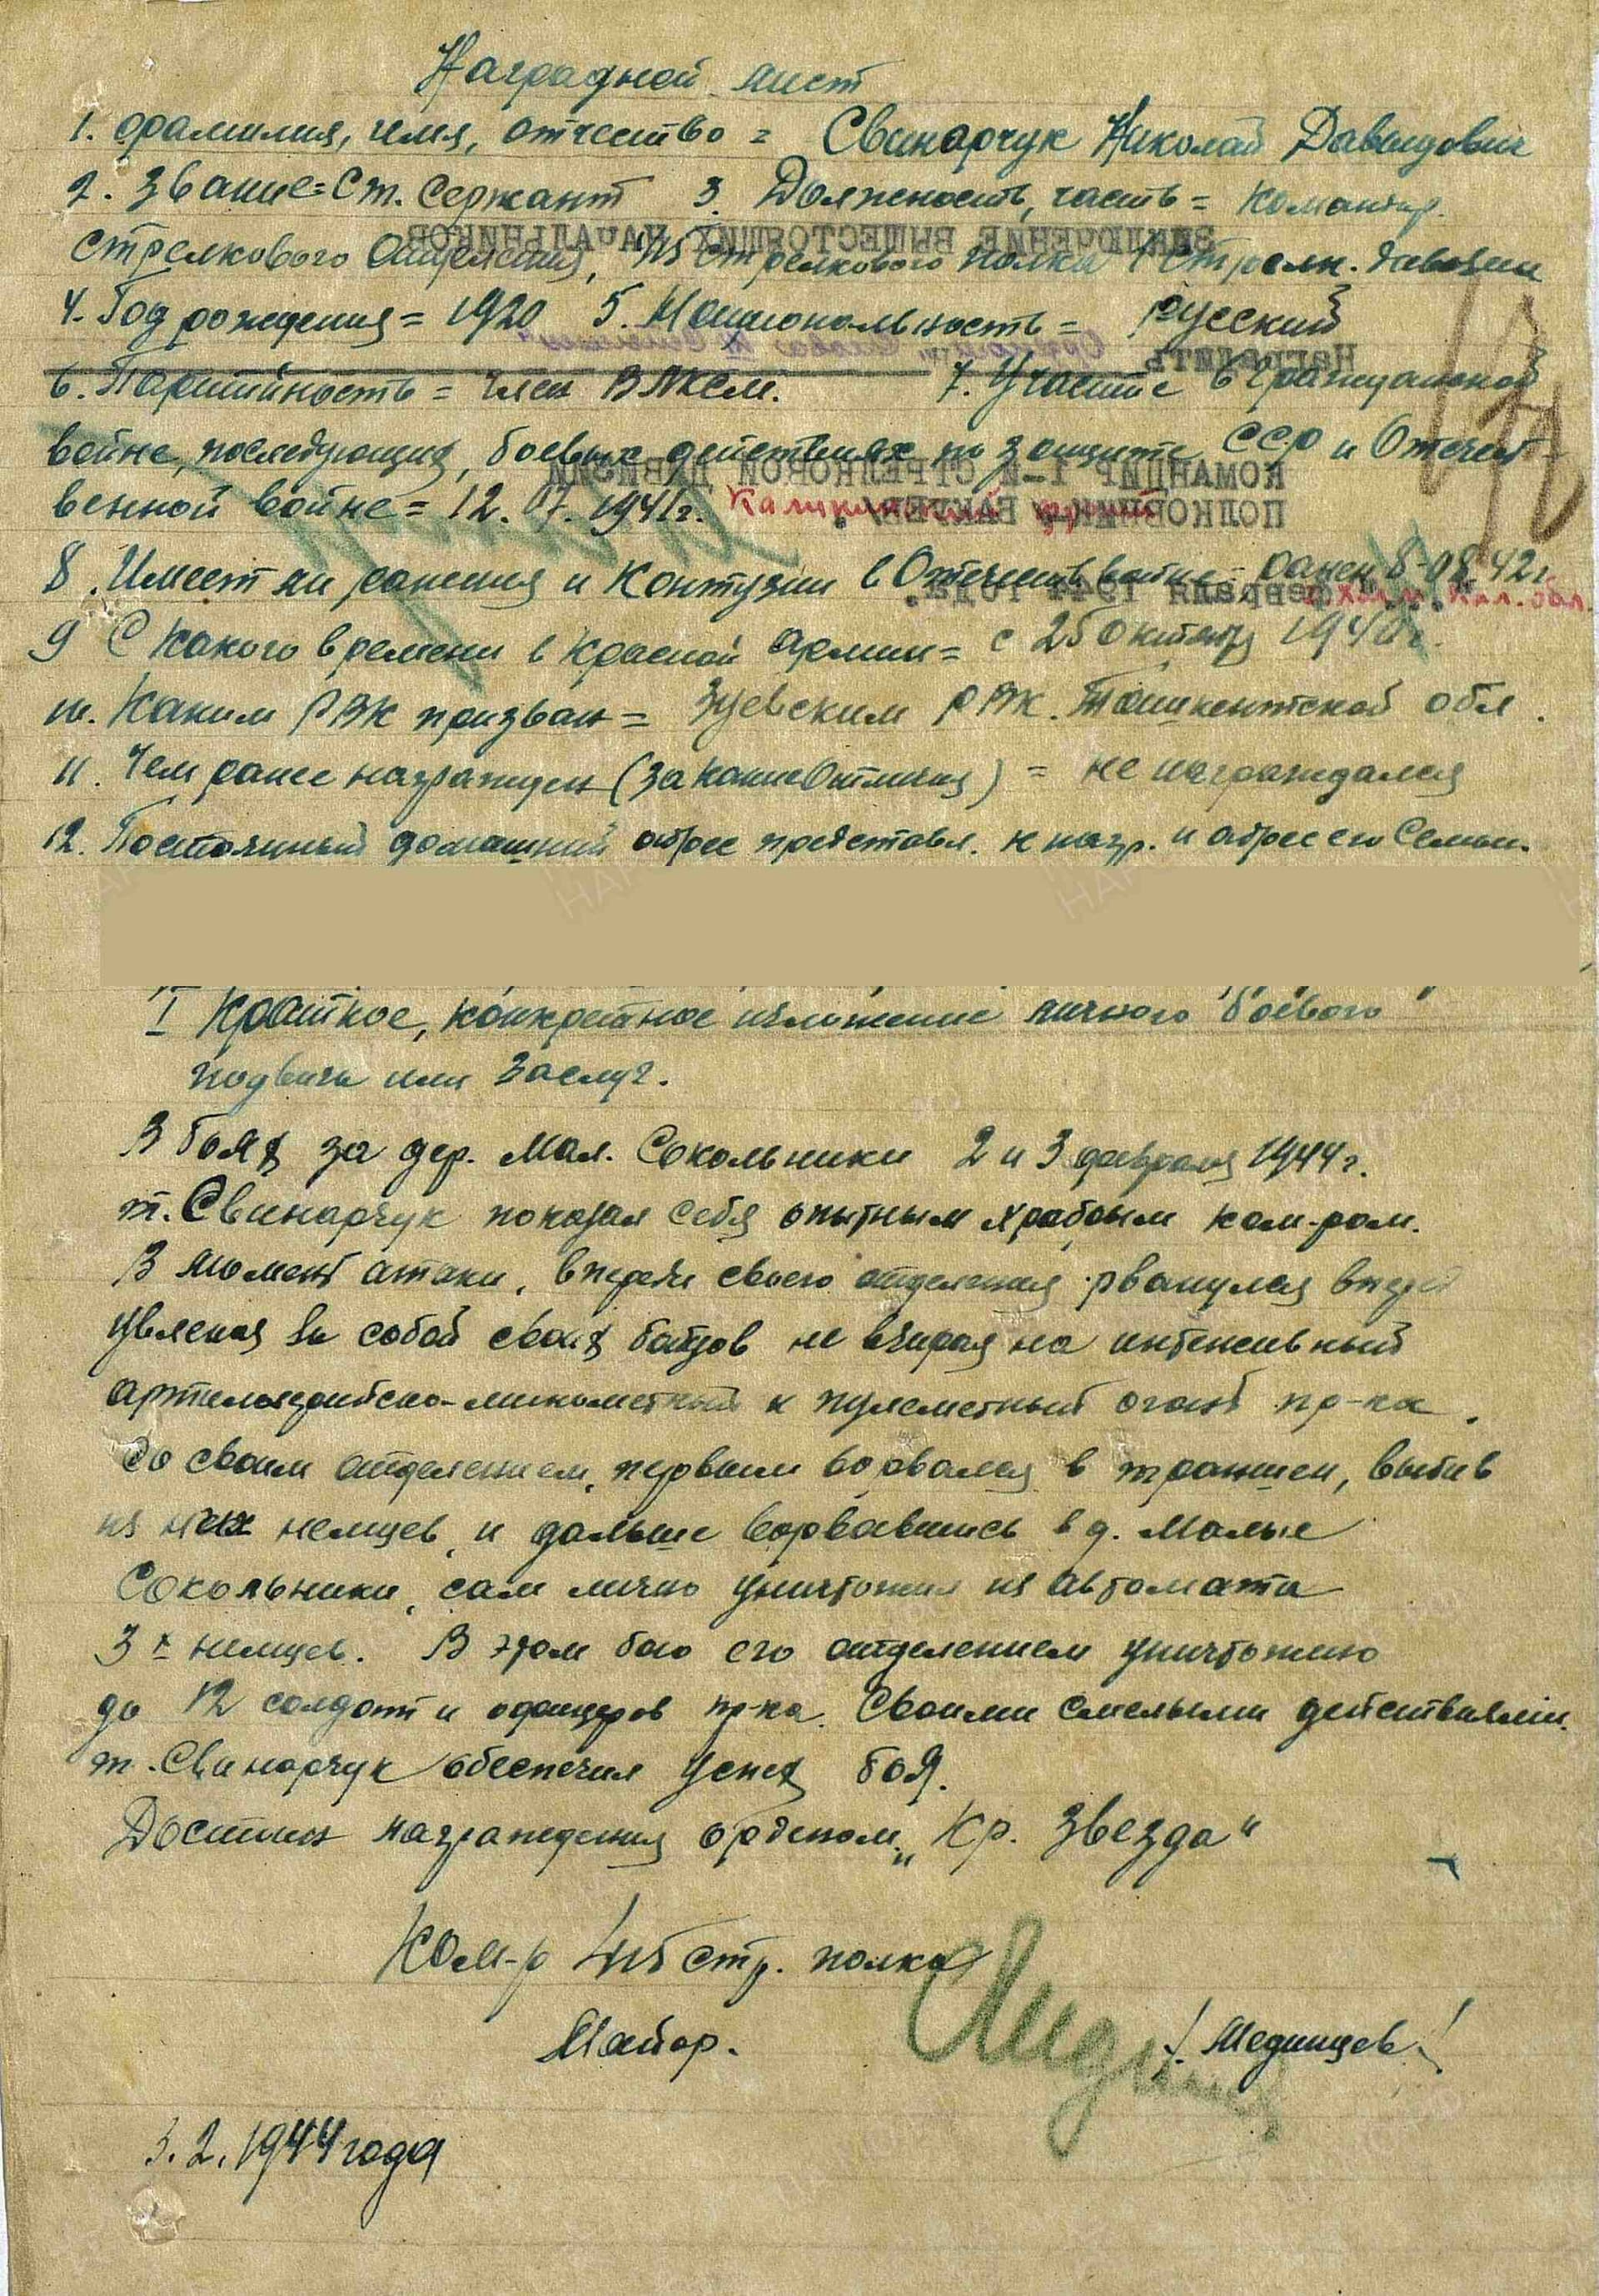 Наградной лист
1. Фамилия, имя, отчество = Свинарчук Николай Давыдович
2. Звание = Ст. Сержант 3. Должность, часть = Командир
стрелкового Отделения, 415 стрелкового полка 1 Стрелк. дивизии
4. Год рождения = 1920 5. Национальность = русский
6. Партийность = член ВЛКСМ. 7. Участие в гражданской
войне, последующих боевых действиях по защите СССР и Отечест-
венной войне = 12.07.1941г. Калининский фронт
8. Имеет ли ранения и контузии в Отечеств войне = ранен 8-08-42г
9 С какого времени в Красной Армии = с 25 октября 1940г.
10. Каким РВК призван = РВК. Ташкентской обл.
11. Чем ранее награжден (за какие Отличия) = не награждался
12. Постоянный домашний адрес представл. к нагр. и адрес его Семьи.
I Краткое, конкретное изложение личного боевого
подвига или заслуг.
В боях за дер. Мал. Сокольники 2 и 3 февраля 1944г.
т. Свинарчук показал себя опытным храбрым ком-ром.
В момент атаки, впереди своего отделения рванулся вперед
увлекая за собой своих бойцов не взирая на интенсивный
артиллерийско-минометный и пулеметный огонь пр-ка.
Со своим отделением, первым ворвался в траншеи, выбив
из них немцев, и дальше ворвавшись в д. Малые
Сокольники, сам лично уничтожил из автомата
3х немцев. В этом бою его отделением уничтожено
до 12 солдат и офицеров пр-ка. Своими смелыми действиями
т. Свинарчук обеспечил успех боя.
Достоин награждения орденом „Кр. Звезда"
Ком-р 415 стр. полка
Майор. / Мединцев /
3.2.1944 года